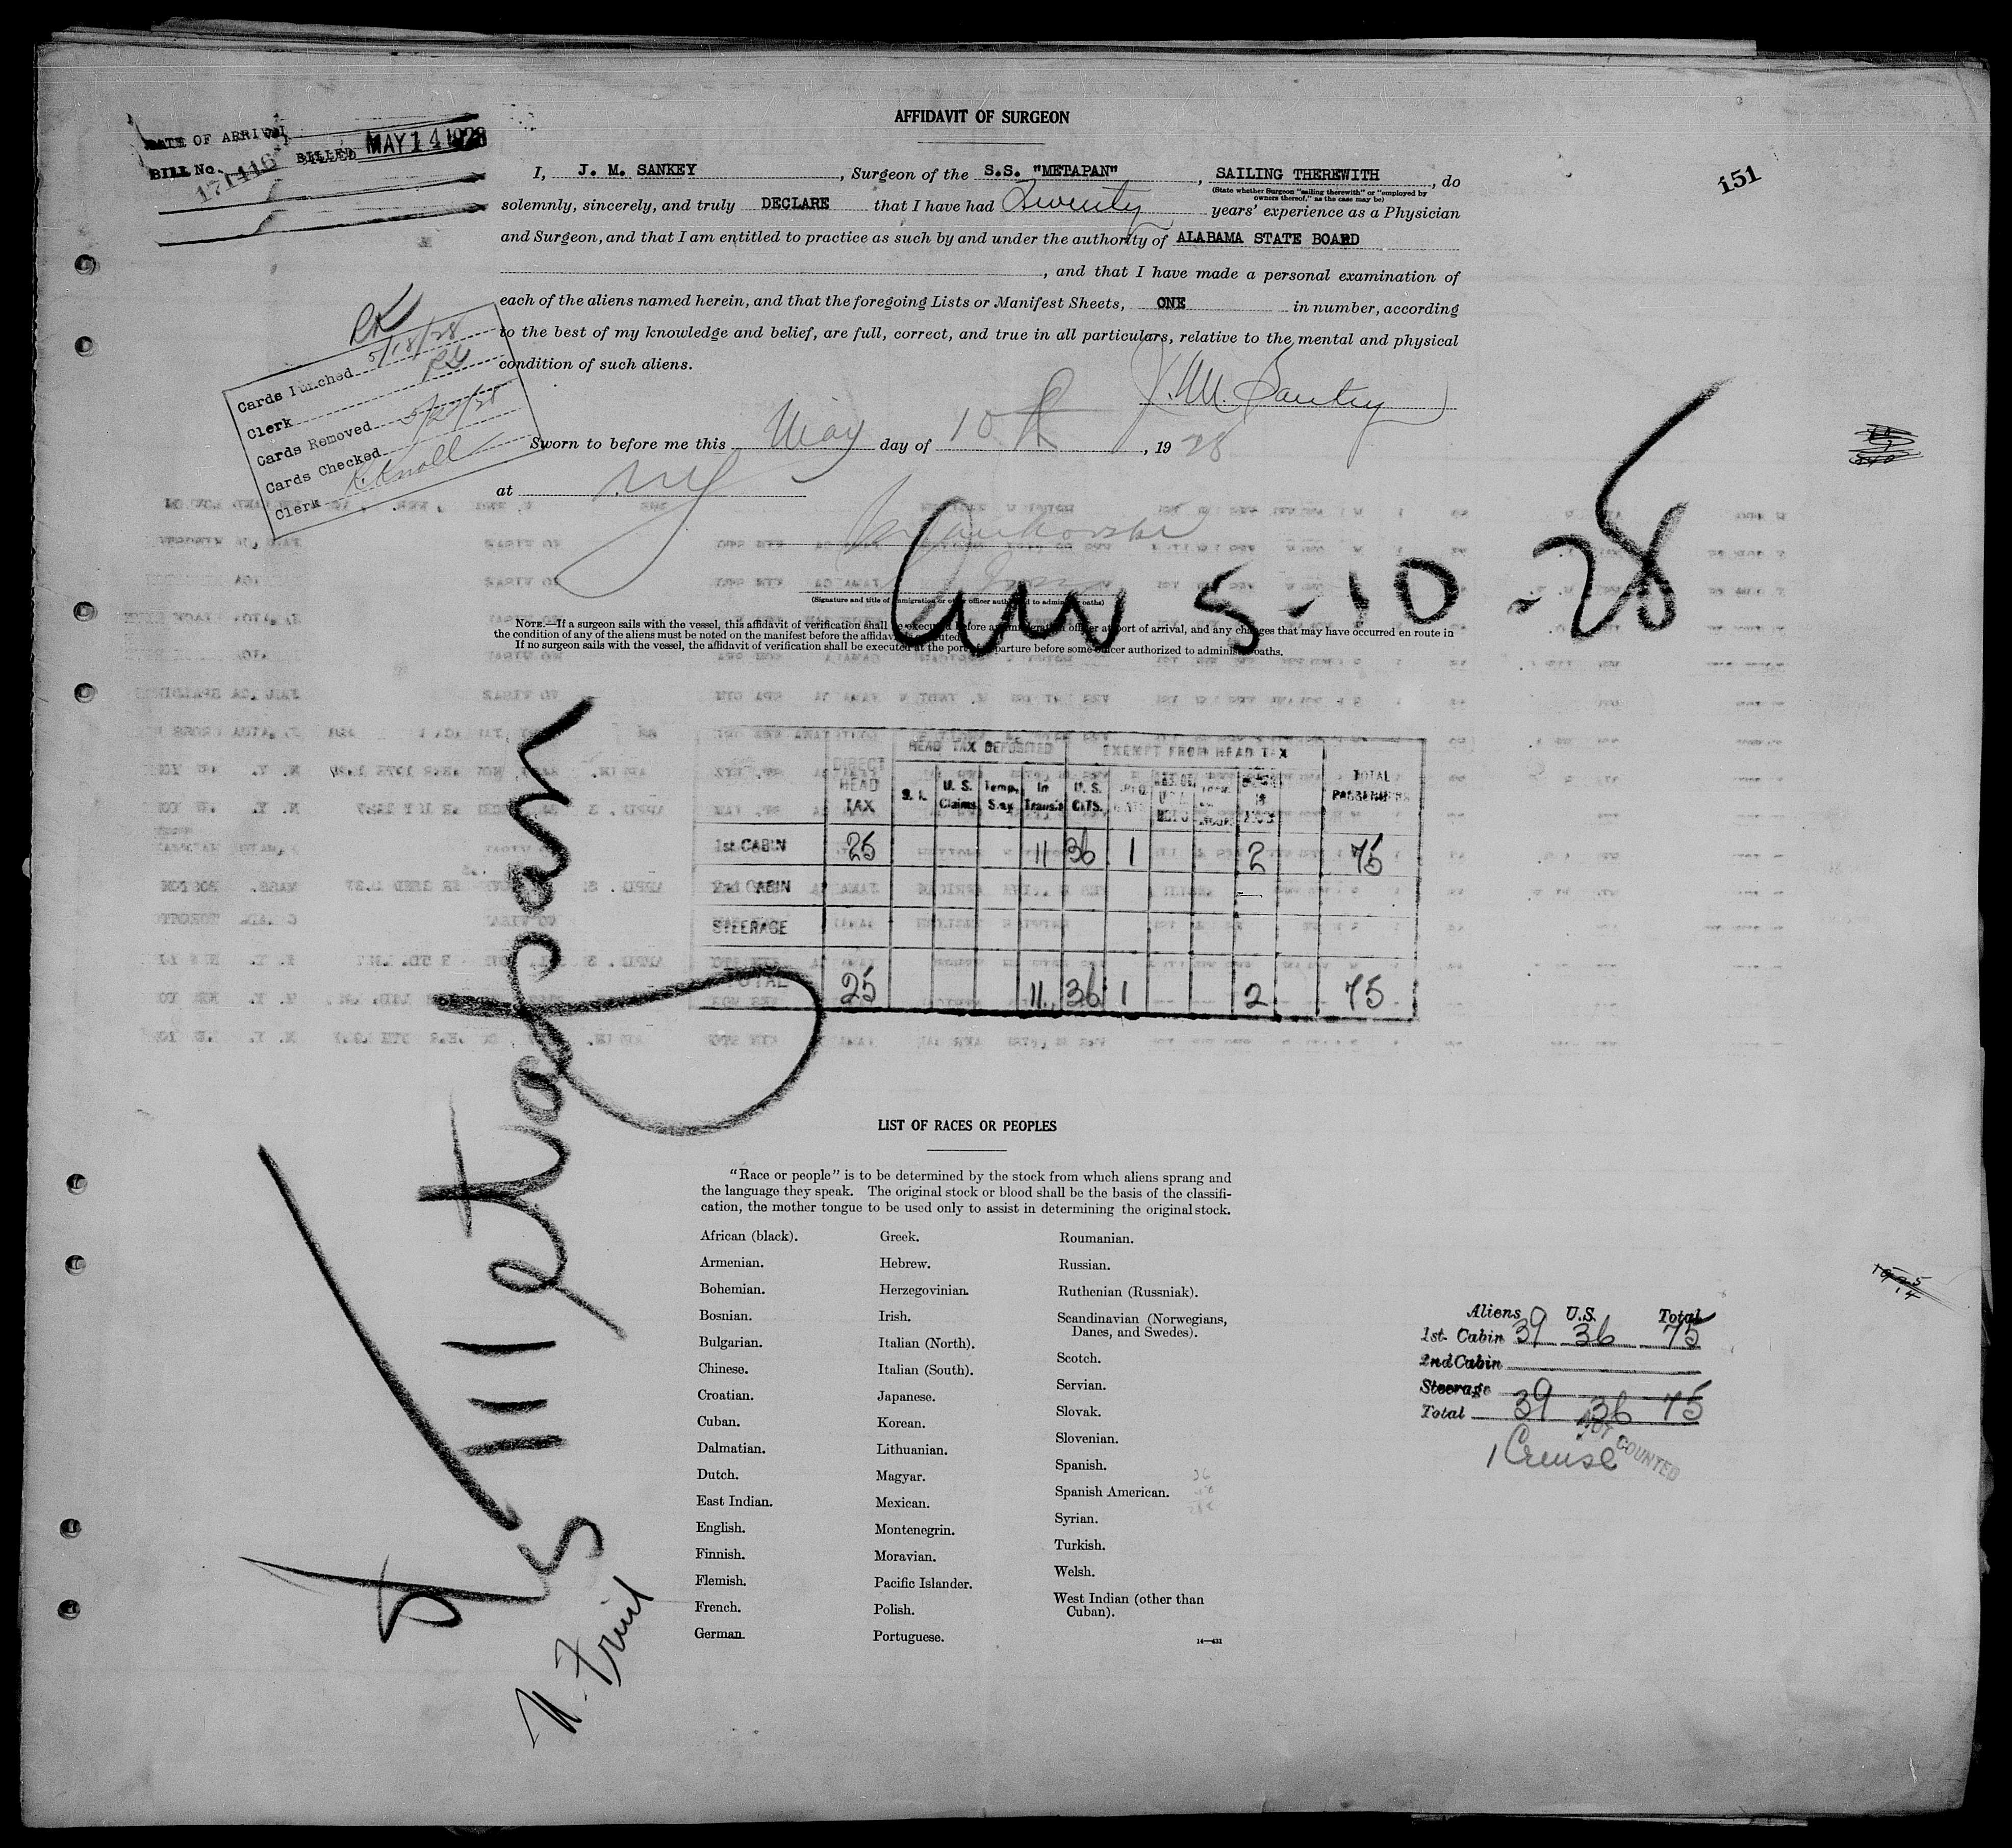 AFFIDAVIT OF SURGEON
DATE OF ARRIVAL
BILL No. 171416 BILLED MAY 14 1928
151
I, J. M. SANKEY, Surgeon of the S.S. "METAPAN", SAILING THEREWITH, do
(State whether Surgeon "sailing therewith" or "employed by owners thereof," as the case may be)
solemnly, sincerely, and truly DECLARE that I have had Twenty years' experience as a Physician
and Surgeon, and that I am entitled to practice as such by and under the authority of ALABAMA STATE BOARD
, and that I have made a personal examination of
each of the aliens named herein, and that the foregoing Lists or Manifest Sheets, ONE in number, according
to the best of my knowledge and belief, are full, correct, and true in all particulars, relative to the mental and physical
condition of such aliens.
J. M. Sankey
Sworn to before me this May day of 10th, 1928
at NY
(Signature and title of immigration or other officer authorized to administer oaths)
RK
Cards Punched 5/18/28
Clerk RK
Cards Removed
Cards Checked
Clerk K. Knoll
Arr 5-10-28
NOTE.—If a surgeon sails with the vessel, this affidavit of verification shall be executed before an immigration officer at port of arrival, and any changes that may have occurred en route in
the condition of any of the aliens must be noted on the manifest before the affidavit is executed.
If no surgeon sails with the vessel, the affidavit of verification shall be executed at the port of departure before some officer authorized to administer oaths.
SS Metapan
U. Fruit
HEAD TAX DEPOSITED EXEMPT FROM HEAD TAX
DIRECT HEAD TAX S. I. U. S. Claims Temp. Stay In Transit U. S. CITS. TOTAL PASSENGERS
1st CABIN 25 11 36 1 2 75
2nd CABIN
STEERAGE
TOTAL 25 11 36 1 2 75
LIST OF RACES OR PEOPLES
"Race or people" is to be determined by the stock from which aliens sprang and
the language they speak. The original stock or blood shall be the basis of the classifi-
cation, the mother tongue to be used only to assist in determining the original stock.
African (black).
Armenian.
Bohemian.
Bosnian.
Bulgarian.
Chinese.
Croatian.
Cuban.
Dalmatian.
Dutch.
East Indian.
English.
Finnish.
Flemish.
French.
German.
Greek.
Hebrew.
Herzegovinian.
Irish.
Italian (North).
Italian (South).
Japanese.
Korean.
Lithuanian.
Magyar.
Mexican.
Montenegrin.
Moravian.
Pacific Islander.
Polish.
Portuguese.
Roumanian.
Russian.
Ruthenian (Russniak).
Scandinavian (Norwegians,
Danes, and Swedes).
Scotch.
Servian.
Slovak.
Slovenian.
Spanish.
Spanish American.
Syrian.
Turkish.
Welsh.
West Indian (other than
Cuban).
14—431
Aliens U.S. Total
1st Cabin 39 36 75
2nd Cabin
Steerage
Total 39 36 75
1 Cruise
NOT COUNTED